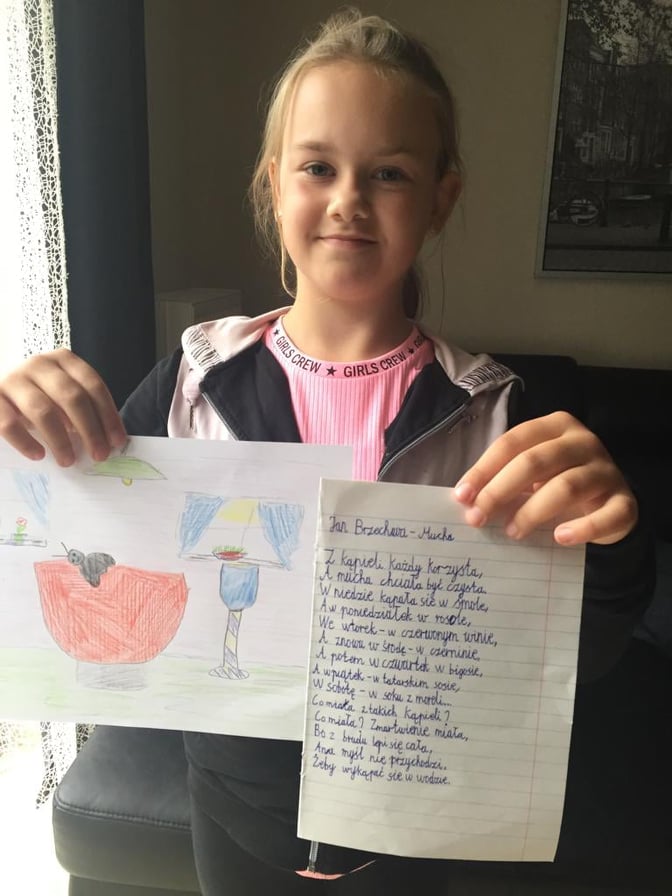 ★ GIRLS CREW ★ GIRLS CREW ★
Jan Brzechwa - Mucha
Z kąpieli każdy korzysta,
A mucha chciała być czysta.
W niedzielę kąpała się w smole,
A w poniedziałek w rosole,
We wtorek - w czerwonym winie,
A znowu w środę - w czerninie,
A potem w czwartek w bigosie,
A w piątek - w tatarskim sosie,
W sobotę - w soku z moreli...
Co miała z takich kąpieli?
Co miała? Zmartwienie miała,
Bo z brudu lepi się cała,
A na myśl nie przychodzi,
Żeby wykąpać się w wodzie.